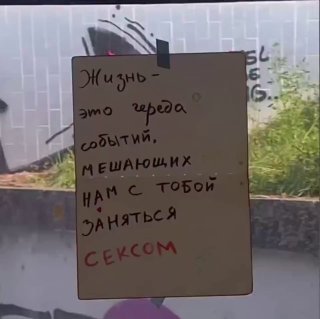 Жизнь -
это череда
событий,
мешающих
нам с тобой
заняться
сексом